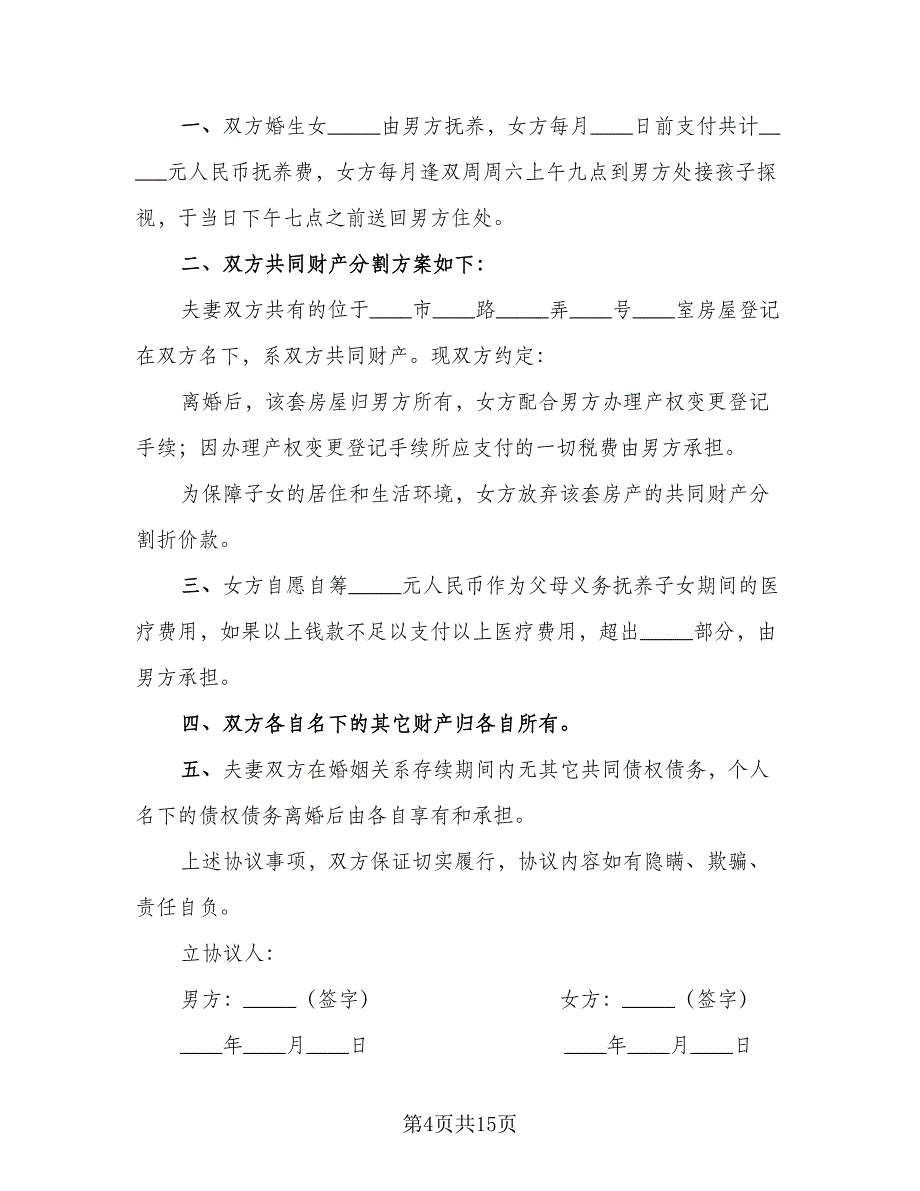 一、双方婚生女_____由男方抚养，女方每月____日前支付共计__
___元人民币抚养费，女方每月逢双周周六上午九点到男方处接孩子探
视，于当日下午七点之前送回男方住处。
二、双方共同财产分割方案如下：
夫妻双方共有的位于____市____路_____弄____号____室房屋登记
在双方名下，系双方共同财产。现双方约定：
离婚后，该套房屋归男方所有，女方配合男方办理产权变更登记
手续；因办理产权变更登记手续所应支付的一切税费由男方承担。
为保障子女的居住和生活环境，女方放弃该套房产的共同财产分
割折价款。
三、女方自愿自筹_____元人民币作为父母义务抚养子女期间的医
疗费用，如果以上钱款不足以支付以上医疗费用，超出_____部分，由
男方承担。
四、双方各自名下的其它财产归各自所有。
五、夫妻双方在婚姻关系存续期间内无其它共同债权债务，个人
名下的债权债务离婚后由各自享有和承担。
上述协议事项，双方保证切实履行，协议内容如有隐瞒、欺骗、
责任自负。
立协议人：
男方：_____（签字） 女方：_____（签字）
____年____月____日 ____年____月____日
第4页共15页